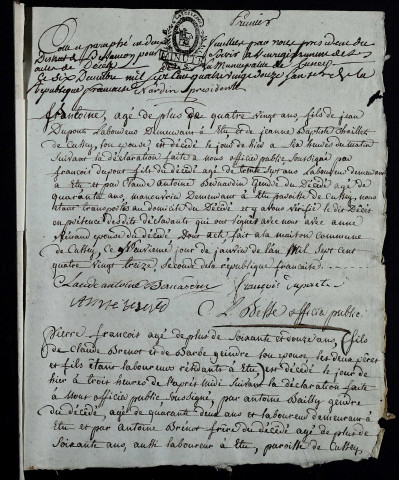 Premier
Cotté et paraphé en deux feuillets par nous président du
District de pour servir à l'enregistrement des
actes de Décès de la Municipalité de Cussey
le six Décembre mil sept cent quatre vingt douze l'an 1er de la
République française Nardin président
MINUTE
françoise, agé de plus de quatre vingt ans fils de jean
Dupont Laboureur Demeurant à Etu et de jeanne Baptiste
de Cussey, son épouse, est décédé le jour de hier à six heures du matin
Suivant la déclaration faite à nous officié public soussigné par
françois dupont fils du décédé agé de trente sept ans Laboureur demeurant
à Etu et par Claude Antoine Bernardin Gendre du Décédé agé de
quarante ans, manouvrié Demeurant à Etu paroisse de Cussey, nous
étant transporté au domicile du Décédé et y avons vérifié le dit Décès
en présence desdits déclarants qui ont signés avec nous avec anne
épouse du décédé. Dont acte, fait à la maison commune
de Cussey, ce neuvieme jour de janvier de l'an Mil Sept cent
quatre vingt treize, second de la république française
Claude antoine Bernardin françois
officié public
Pierre francois agé de plus de Soixante et douze ans, fils
de Claude Brenot et de Barbe gendre son épouse, les deux pères
et fils étant laboureurs résidants à Etu, est décédé le jour de
hier à trois heures de l'après midi Suivant la déclaration faite
à Nous officié public Soussigné, par antoine Bailly gendre
du décédé, agé de quarante deux ans et laboureur demeurant à
Etu et par Antoine Brenot frère du décédé agé de plus de
Soixante ans, aussi laboureur à Etu, paroisse de Cussey